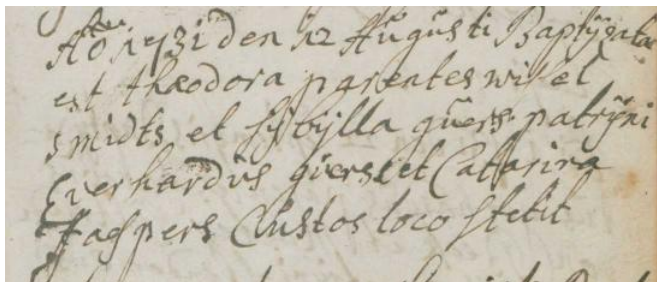 Ao 1731 den 12 Augusti Baptysata
est theodora parentes wilel
smidts et sybylla guers patryni
Everhardus giers et Catarina
Jaspers Custos loco stetit